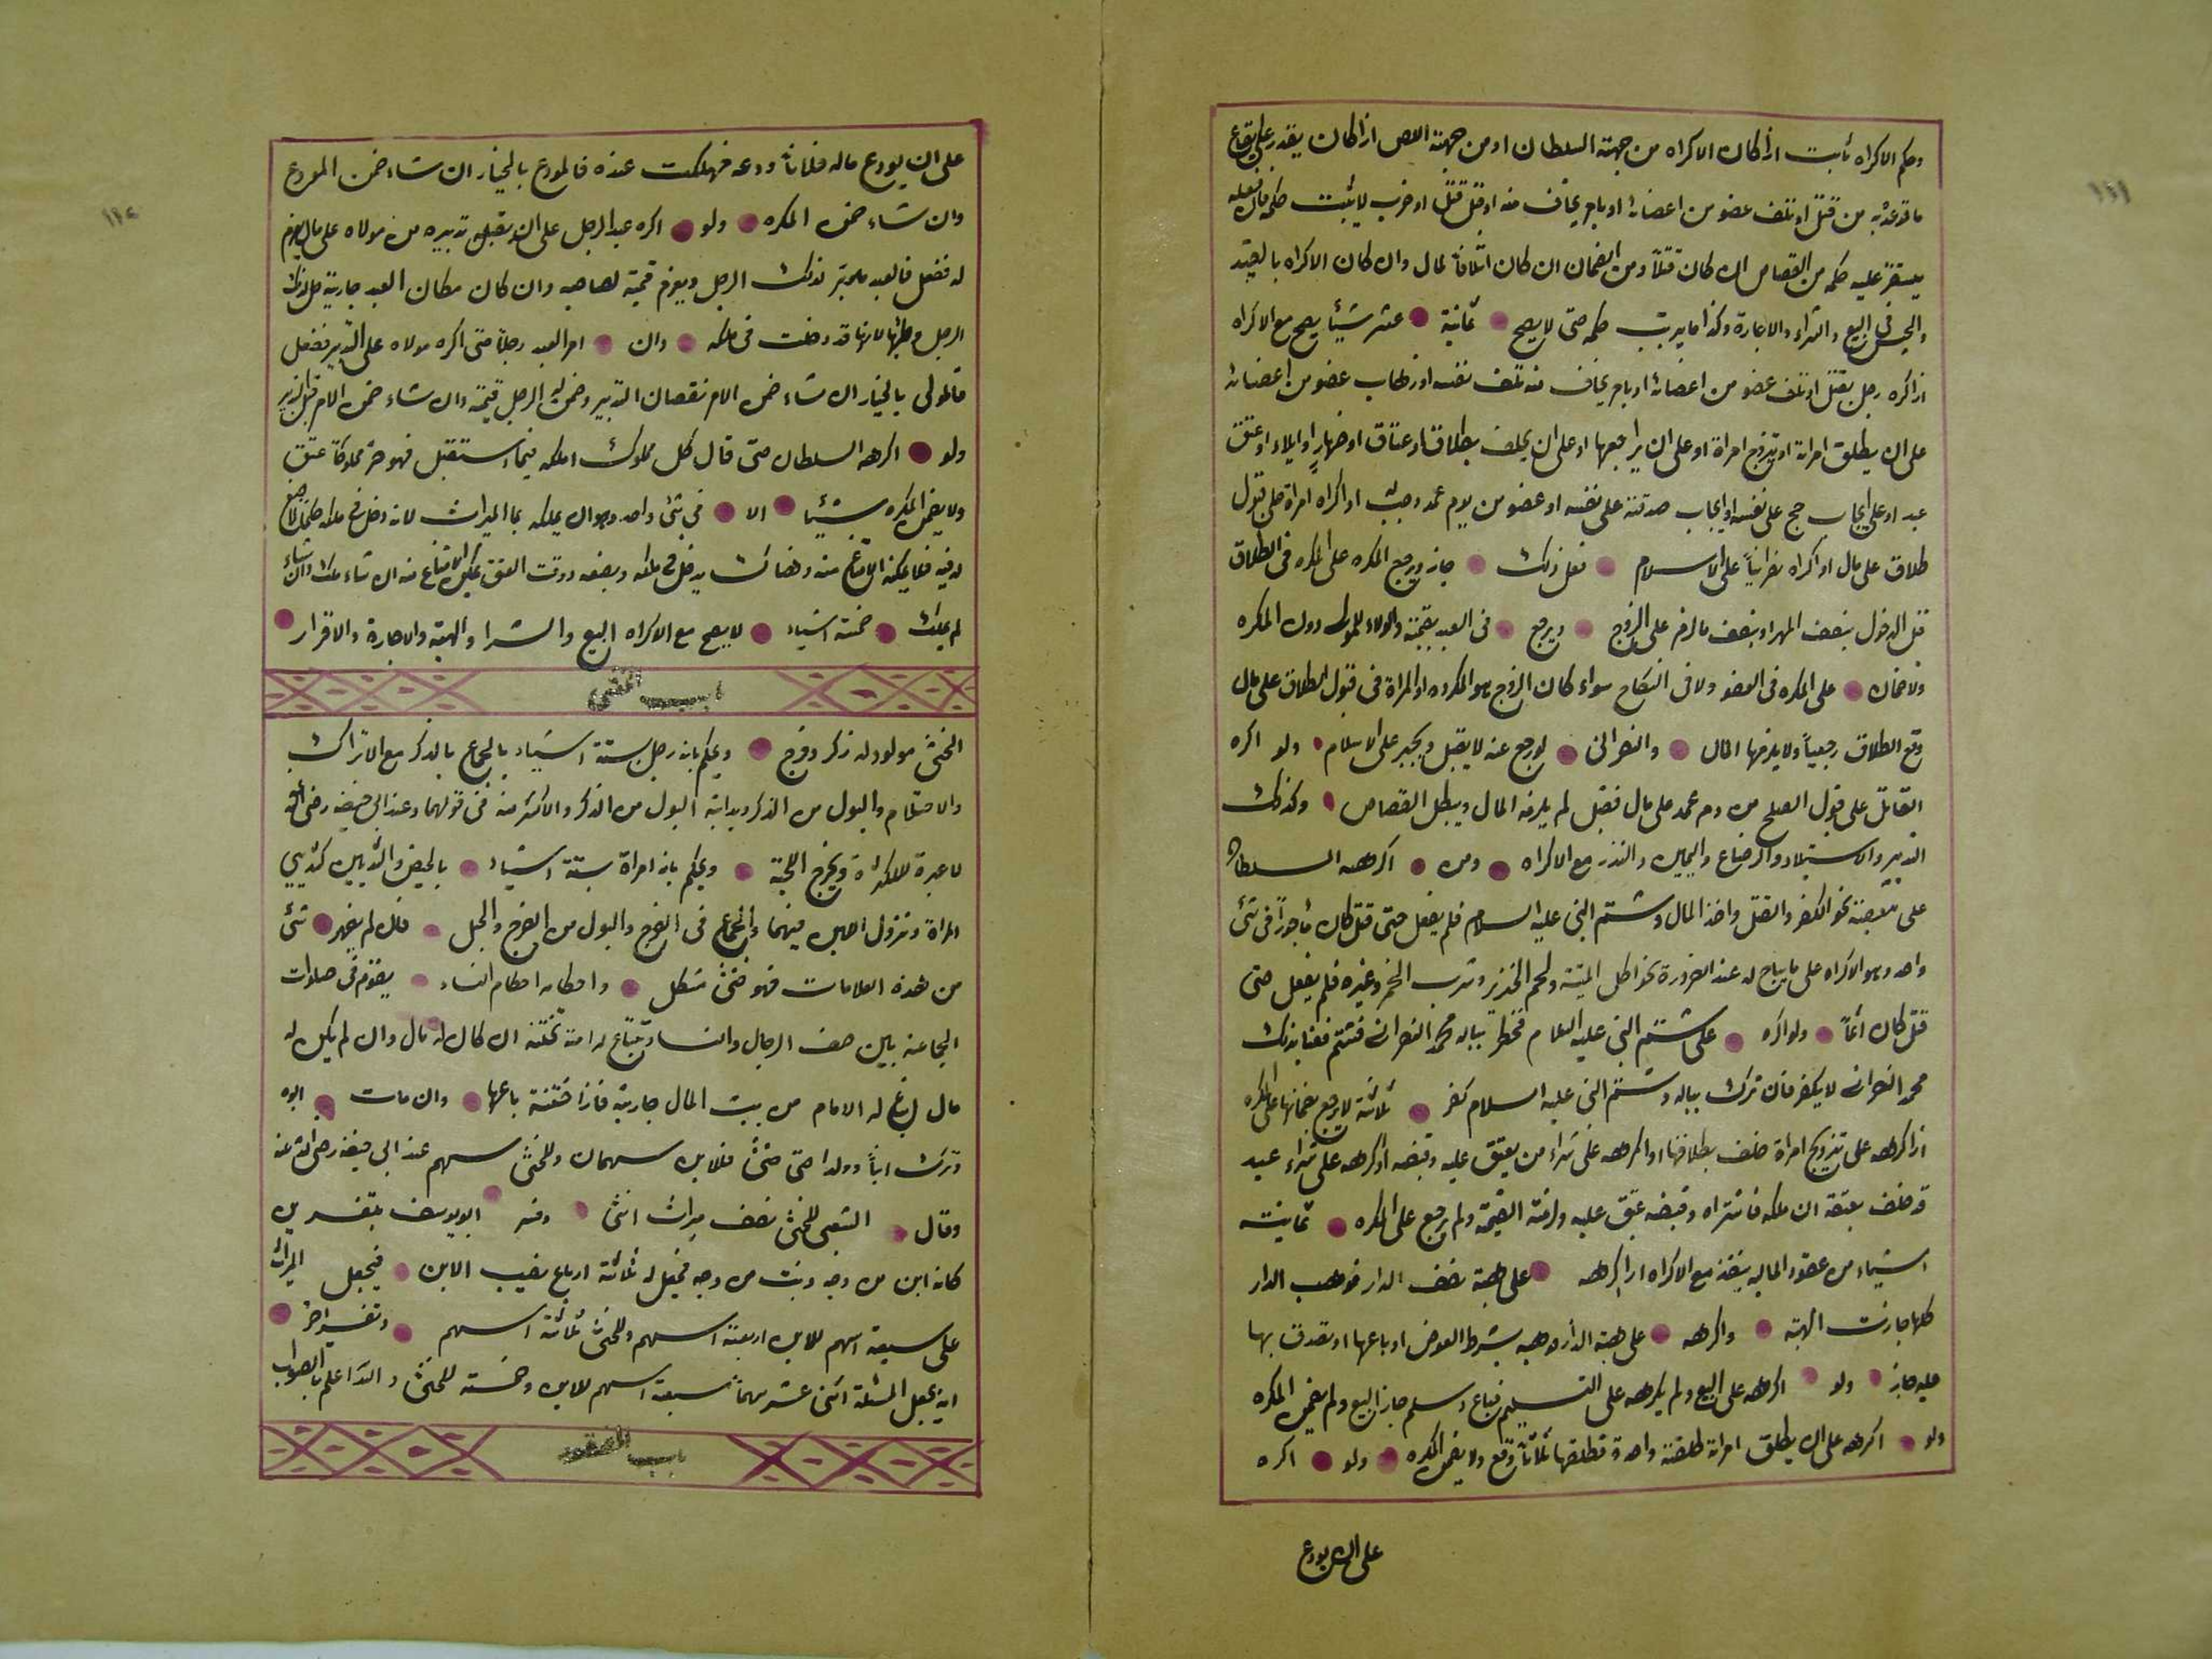 ١٤١
وحكم الاكراه ثابت اذا كان الاكراه من جهة السلطان او من جهة اللص اذا كان يقدر على ايقاع
ما توعد به من قتل او تلف عضو من اعضائه او بامر يخاف منه او قبل قتل او ضرب لا يثبت حكمه فان فعله
يستقر عليه حكمه من القصاص ان كان قتلاً ومن الضمان ان كان اتلافاً لمال وان كان الاكراه بالقيد
والحبس في البيع والشراء والاجارة وكذا ما يرتب حكمه حتى لا يصح ثمانية عشر شيئا يصح مع الاكراه
اذا كره رجل بقتل او تلف عضو من اعضائه او بامر يخاف منه تلف نفسه او ذهاب عضو من اعضائه
على ان يطلق امراته او يتزوج امراة او على ان يراجعها او على ان يحلف بطلاق او عتاق او ظهار او ايلاء او عتق
عبد او على ايجاب حج على نفسه او ايجاب صدقة على نفسه او عفو من دم عمد وجب له او اكراه امراة على قبول
طلاق على مال او اكراه نصرانياً على الاسلام ففعل ذلك جاز ويرجع المكره على المكره في الطلاق
قبل الدخول بنصف المهر او بنصف ما لزم على الزوج ويرجع في العبد بقيمته والولاء للمولى دون المكره
ولا ضمان على المكره في العفو ولا في النكاح سواء كان الزوج هو المكروه او المراة في قبول الطلاق على مال
وقع الطلاق رجعياً ولا يلزمها المال والنصراني لو رجع عنه لا يقبل ويجبر على الاسلام ولو اكره
القاتل على قبول الصلح من دم عمد على مال فقبل لم يلزمه المال ويبطل القصاص وكذلك
التدبير والاستيلاد والرضاع واليمين والنذر مع الاكراه ومن اكرهه السلطان
على معصية نحو الكفر والقتل واخذ المال وشتم النبي عليه السلام فلم يفعل حتى قتل كان ماجوراً في شئ
واحد وهو الاكراه على ما يباح له عند الضرورة نحو اكل الميتة ولحم الخنزير وشرب الخمر وغيره فلم يفعل حتى
قتل كان اثماً ولو اكره على شتم النبي عليه السلام فخطر بباله محمد النصراني فشتم فعنا بذلك
محمد النصراني لا يكفر فان ترك بباله وشتم النبي عليه السلام كفر ثلاثة لا يرجع بضمانها على المكره
اذا كرهه على تزويج امراة حلف بطلاقها او اكرهه على شراء من يعتق عليه وقبضه او اكرهه على شراء عبد
قد حلف بعتقه ان ملكه فاشتراه وقبضه عتق عليه ولزمته القيمة ولم يرجع على المكره ثمانية
اشياء من عقود المالية ينفذ مع الاكراه اذا اكرهه على هبة نصف الدار فوهب الدار
كلها جازت الهبة واكرهه على هبة الدار فوهبه بشرط العوض او باعها او تصدق بها
عليه جاز ولو اكرهه على البيع ولم يكرهه على التسليم فباع وسلم جاز البيع ولم يضمن المكره
ولو اكرهه على ان يطلق امراته طلقة واحدة فطلقها ثلاثاً وقع ولا يضمن المكره ولو اكره
على ان يودع
١٤٢
على ان يودع ماله فلاناً ودعه فهلكت عنده فالمودع بالخيار ان شاء ضمن المودع
وان شاء ضمن المكره ولو اكره عبد الرجل على ان يقبل تدبيره من مولاه على مال يغرم
له ففعل فالعبد مدبر لذلك الرجل ويغرم قيمة لصاحبه وان كان مكان العبد جارية حل لذلك
الرجل وطئها لانها قد دخلت في ملكه وان امر العبد رجلاً حتى اكره مولاه على التدبير ففعل
فالمولى بالخيار ان شاء ضمن الامر نقصان التدبير وضمن له الرجل قيمته وان شاء ضمن الامر قبل التدبير
ولو اكرهه السلطان حتى قال كل مملوك املكه فيما استقبل فهو حر فملوكا عتق
ولا يضمن المكره شيئا الا في شئ واحد وهو ان يملكه بما الميراث لانه دخل في ملكه حكما لا صنع
له فيه فلا يمكنه الامتناع منه وهناك يدخل في ملكه وبصنعه ووقت العتق يمكن الامتناع منه ان شاء ملك وان شاء
لم يملك خمسة اشياء لا يصح مع الاكراه البيع والشرا والهبة والاجارة والاقرار
باب الخنثى
الخنثى مولود له ذكر وفرج ويحكم بانه رجل بستة اشياء بالجماع بالذكر مع الانزال
والاحتلام والبول من الذكر وبدايته البول من الذكر والاكثر منه في قولهما وعند ابي حنيفة رضي الله عنه
لا عبرة للاكثرة ويخرج اللحية ويحكم بانه امراة بستة اشياء بالحيض والثديين كثديي
المراة ونزول اللبن فيهما والجماع في الفرج والبول من الفرج والحبل فان لم يظهر شئ
من هذه العلامات فهو خنثى مشكل واحكامه احكام النساء يقوم في صلوات
الجماعة بين صف الرجال والنساء ويبتاع له امة تختنه ان كان له مال وان لم يكن له
مال ابتاع له الامام من بيت المال جارية فاذا ختنته باعها وان مات ابوه
وترك ابناً وولدا خنثى فللابن سهمان وللخنثى سهم عند ابي حنيفة رضي الله عنه
وقال الشعبي للخنثى نصف ميراث انثى وفسر ابو يوسف بتفسيرين
كانه ابن من وجه وبنت من وجه فيجعل له ثلاثة ارباع نصيب الابن فيجعل الميراث
على سبعة اسهم للابن اربعة اسهم وللخنثى ثلاثة اسهم وتفسير اخر
انه يجعل المسئلة اثنى عشر سهماً سبعة اسهم للابن وخمسة للخنثى والله اعلم بالصواب
باب المفقود